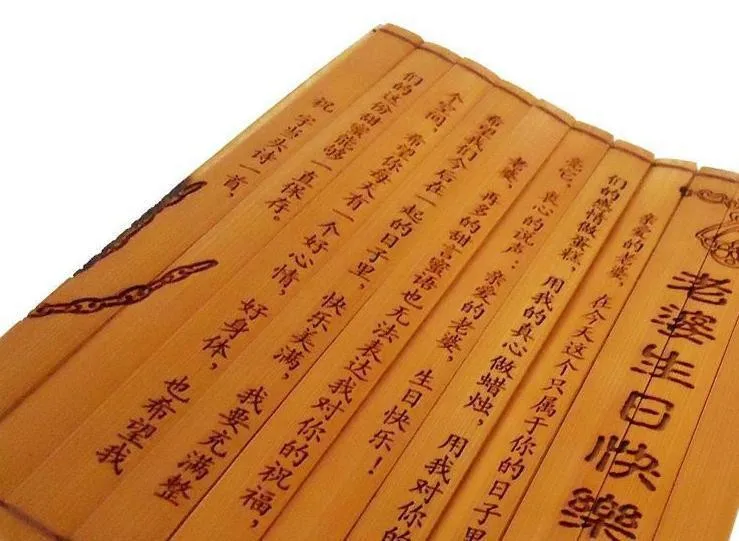 老婆生日快樂
亲爱的老婆，在今天这个只属于你的日子里
们的感情做蛋糕，用我的真心做蜡烛，用我对你的
亮它，真心的说声：亲爱的老婆，生日快乐！
老婆，再多的甜言蜜语也无法表达我对你的祝福，
希望我们今后在一起的日子里，快乐美满，我要充满整
个空间，希望你每天有一个好心情，好身体，也希望我
们的这份甜蜜能够一直保存。
祝 字当头诗一首，